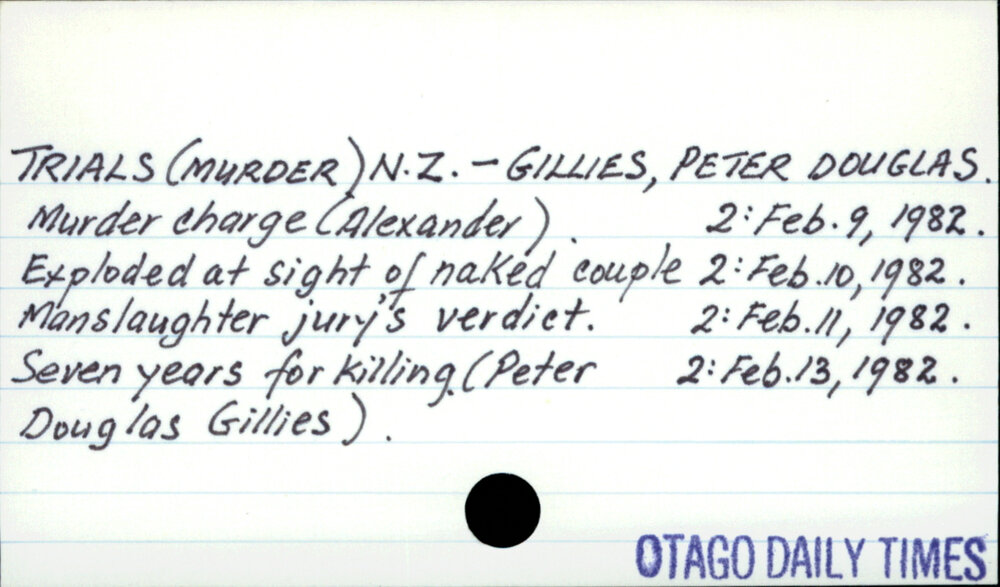 TRIALS (MURDER) N.Z. - GILLIES, PETER DOUGLAS.
Murder charge (Alexander). 2: Feb. 9, 1982.
Exploded at sight of naked couple 2: Feb. 10, 1982.
Manslaughter jury's verdict. 2: Feb. 11, 1982.
Seven years for killing. (Peter 2: Feb. 13, 1982.
Douglas Gillies).
OTAGO DAILY TIMES